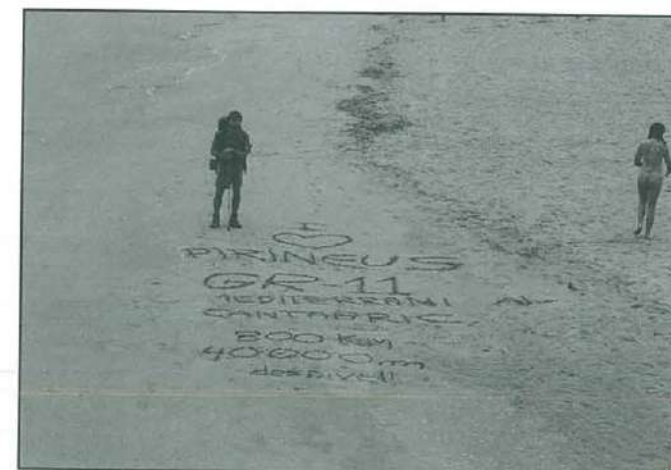 I
♡
PIRINEUS
GR-11
MEDITERRANI AL
CANTÀBRIC
800 Km
40.000 m
desnivell